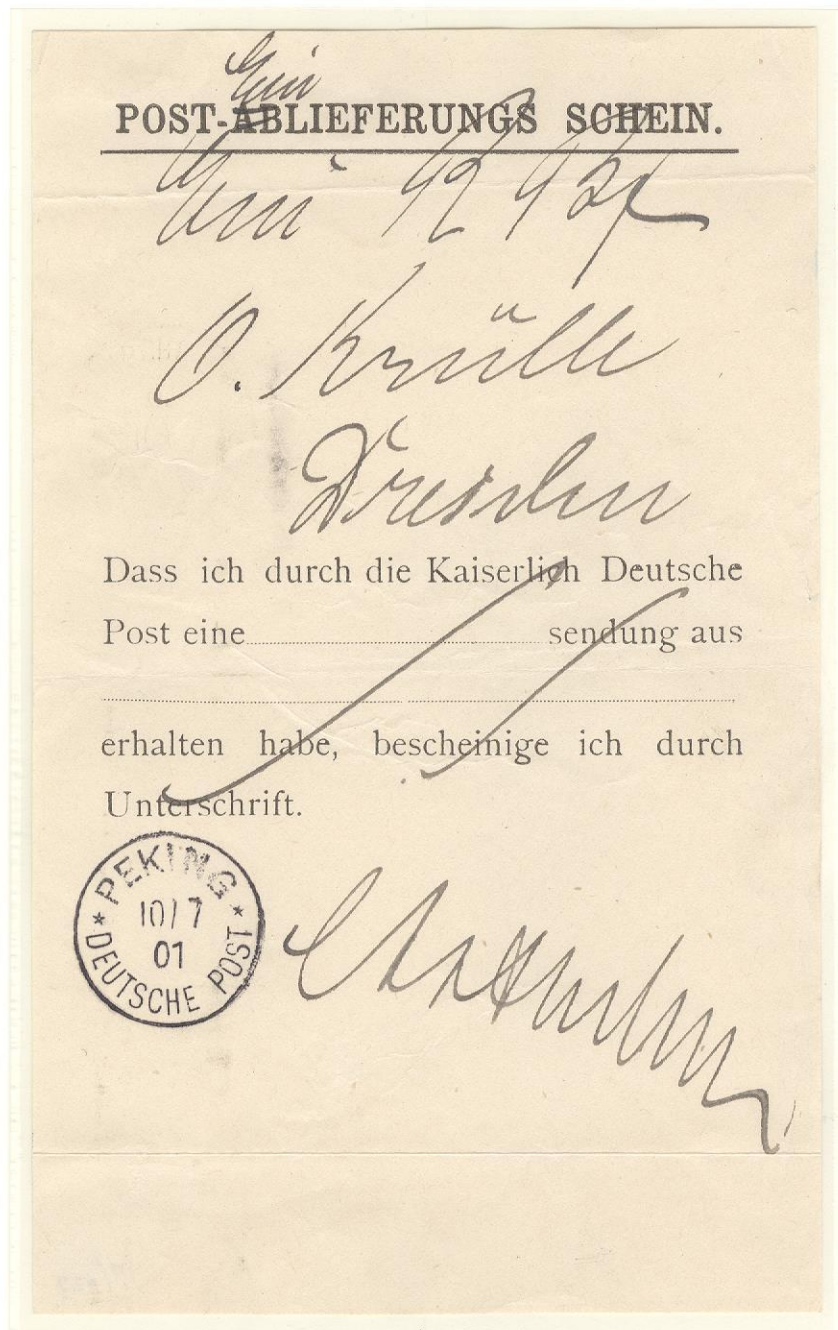 Ein
POST-ABLIEFERUNGS SCHEIN.
O. Krülle
Dresden
Dass ich durch die Kaiserlich Deutsche
Post eine sendung aus
erhalten habe, bescheinige ich durch
Unterschrift.
PEKING
10/7
01
DEUTSCHE POST